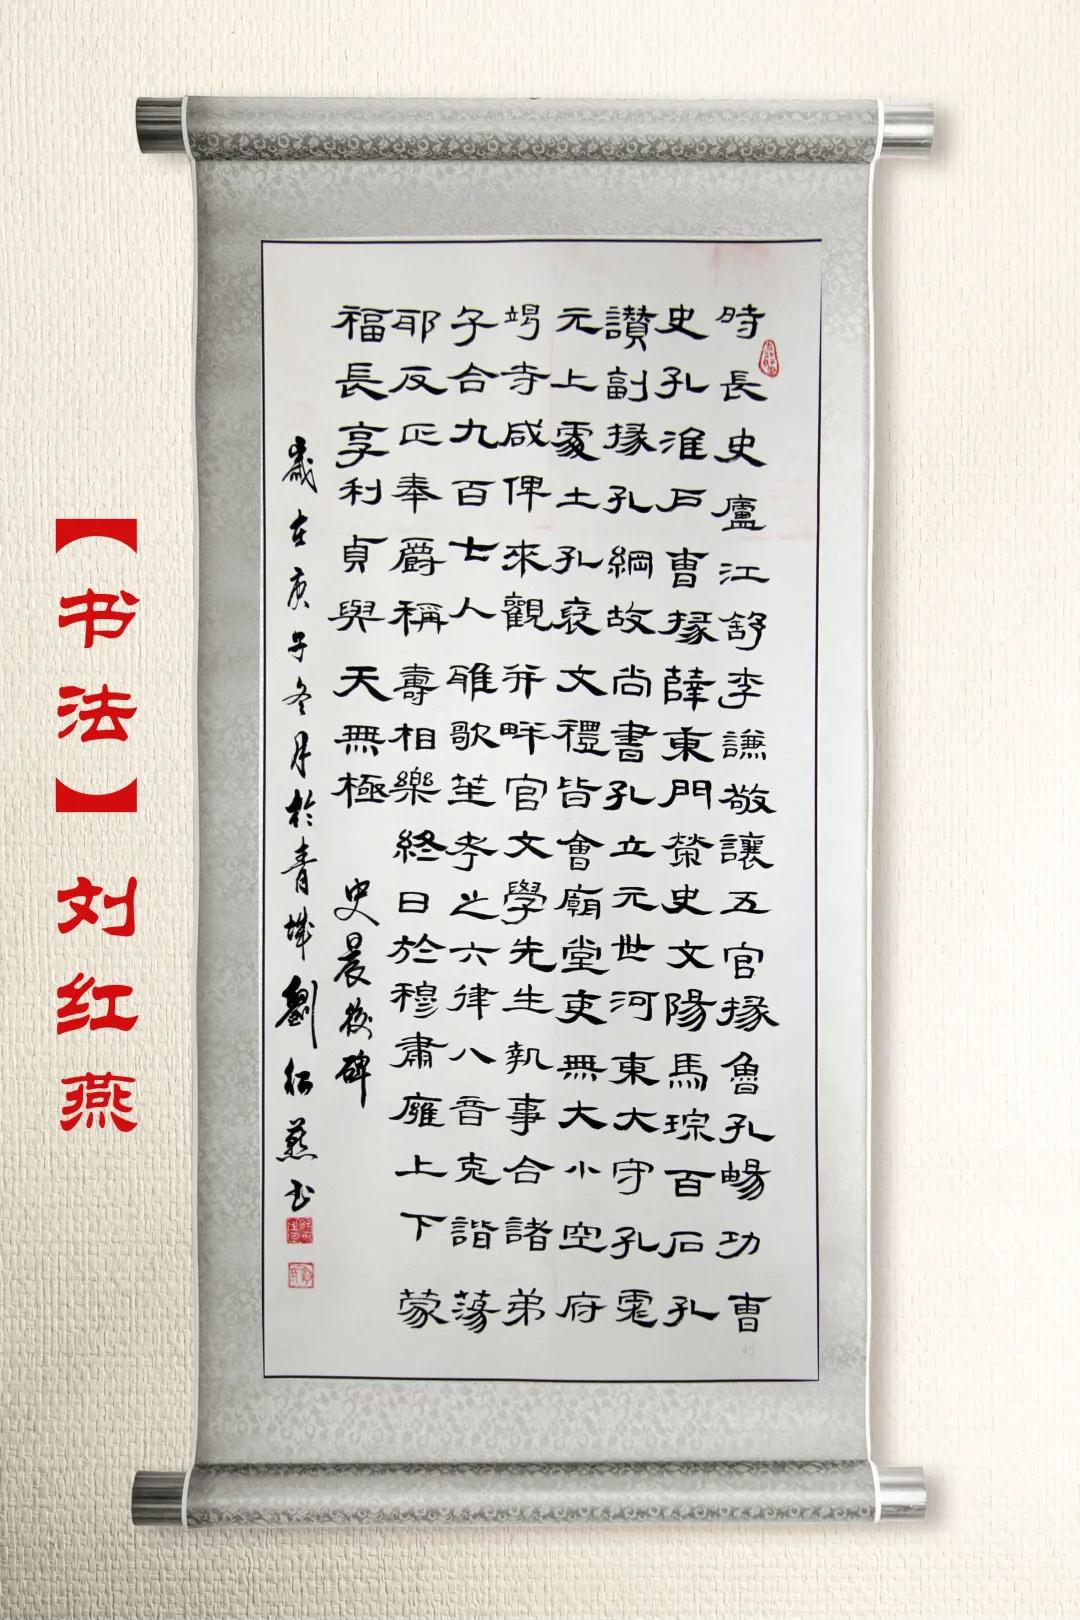 時長史廬江舒李謙敬讓五官掾魯孔暢功曹
史孔淮戶曹掾薛東門榮史文陽馬琮百石孔
讃副掾孔綱故尚書孔立元世河東大守孔彪
元上處土孔褎文禮皆會廟堂吏無大小空府
竭寺咸俾來觀并畔官文學先生執事合諸弟
子合九百七人雅歌笙考之六律八音克諧蕩
耶反正奉爵稱壽相樂終日於穆肅雍上下蒙
福長享利貞與天無極
史晨後碑
歲在庚子冬月於青城劉紅燕书
【书法】刘红燕